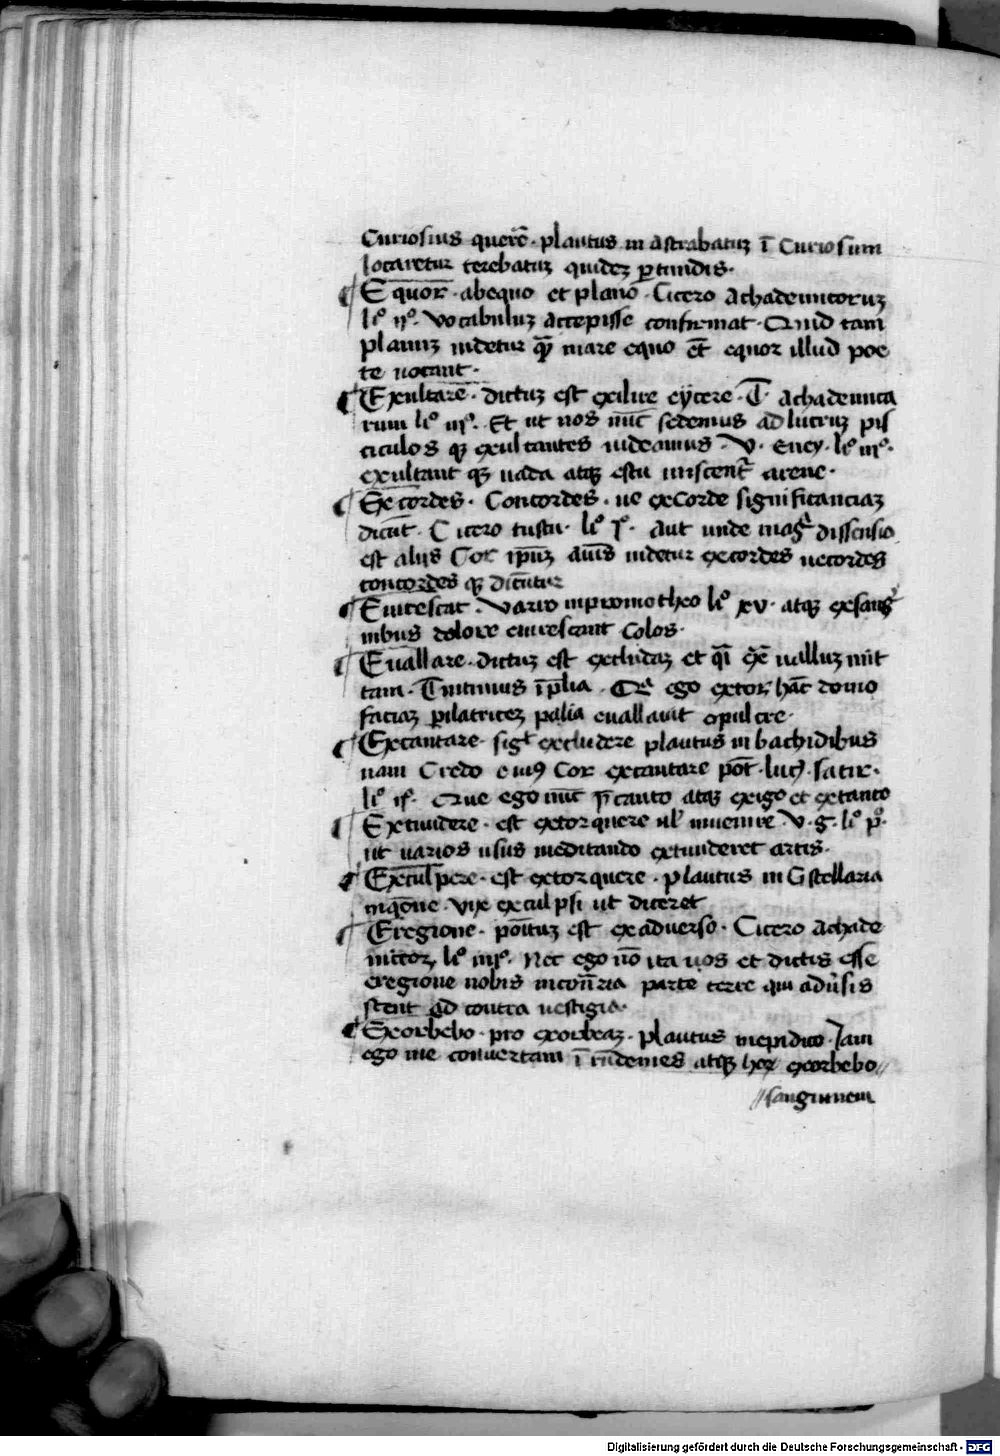 Curiosius querē · plautus in Astrabatuȝ ī Curiosum
locaretur terebatuȝ quideȝ ꝑtundis ·
¶ Equor̄ · abequo et plano · Cicero Achademicoruȝ
liº ijº · Vocabuluȝ Accepisse confirmat · Quid tam
planuȝ uidetur qȝ mare equo et̄ equor illud poe
te uocant ·
¶ Exultare · dictuȝ est exilire eÿcere · T̄ · Achademica
rum liº iijº · Et ut nos nūc sedemus ad lucruȝ pis
ciculos qȝ exultantes uideamus · V · Eney · liº iijº ·
exultant qȝ uada atqȝ estu miscent᷑ arene ·
¶ Excordes · Concordes · ue excorde significanciaȝ
dicūt · Cicero tuscu · liº jº · Aut unde mag᷑ dissensio
est alijs Cor ip̄uȝ aīus uidetur excordes uecordes
concordes qȝ dicūtur
¶ Euirescat · Varro inpromotheo liº xv · atqȝ exsang᷑
inibus dolore euirescunt Colos ·
¶ Euallare · dictuȝ est excludaȝ et qī ex̄ ualluȝ mit
tam · Titinius īp̄lia · ego extor hāc domo
faciaȝ pilatriceȝ palia euallauit opulcre ·
¶ Excantare · sigt excludere plautus in bachidibus
nam Credo eiuꝰ Cor excantare pot̄ · lucȝ · satir ·
liº ijº · Que ego nūc p̄canto atqȝ exigo et extanto
¶ Extundere · est extorquere ul᷑ inuenire · V · g · liº pº ·
ut uarios usus meditando extunderet artis ·
¶ Exculpere · est extorquere · plautus in Gstellaria
inqōne · vix exculpsi ut diceret
¶ Eregione · poītuȝ est exaduerso · Cicero Achade
micoꝝ liº iiijº · Nec ego nō ita uos et dictis esse
eregione nobis incoñria parte terre qui aduīsis
stent ad contra uestigia ·
¶ Exorbebo · pro exorbeaȝ · plautus inepidico · Jam
ego me conuertam ī rūdemes atqȝ hoꝝ exorbebo //
// sanguinem
Digitalisierung gefördert durch die Deutsche Forschungsgemeinschaft - DFG